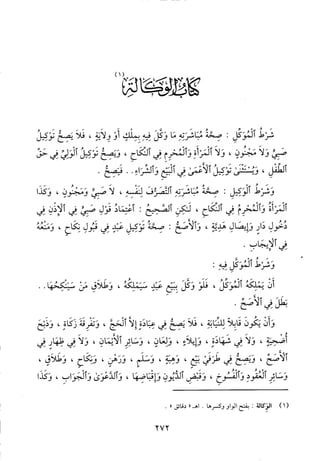 كتاب الوكالة (١)
شرط الموكل : صحة مباشرته ما وكل فيه بملك أو ولاية ، فلا يصح توكيل
صبي ولا مجنون ، ولا المرأة والمحرم في النكاح ، ويصح توكيل الولي في حق
الطفل ، ويستثنى توكيل الأعمى في البيع والشراء . . فيصح .
وشرط الوكيل : صحة مباشرته التصرف لنفسه ، لا صبي ومجنون ، وكذا
المرأة والمحرم في النكاح ، لكن الصحيح : اعتماد قول صبي في الإذن في
دخول دار وإيصال هدية ، والأصح : صحة توكيل عبد في قبول نكاح ، ومنعه
في الإيجاب .
وشرط الموكل فيه :
أن يملكه الموكل ، فلو وكل ببيع عبد سيملكه ، وطلاق من سينكحها . .
بطل في الأصح .
وأن يكون قابلا للنيابة ، فلا يصح في عبادة إلا الحج ، وتفرقة زكاة ، وذبح
أضحية ، ولا في شهادة ، وإيلاء ، ولعان ، وسائر الأيمان ، ولا في ظهار في
الأصح ، ويصح في طرفي بيع ، وهبة ، وسلم ، ورهن ، ونكاح ، وطلاق ،
وسائر العقود والفسوخ ، وقبض الديون وإقباضها ، والدعوى والجواب ، وكذا
(١) الوكالة : بفتح الواو وكسرها . اهـ « دقائق » .
٢٧٢